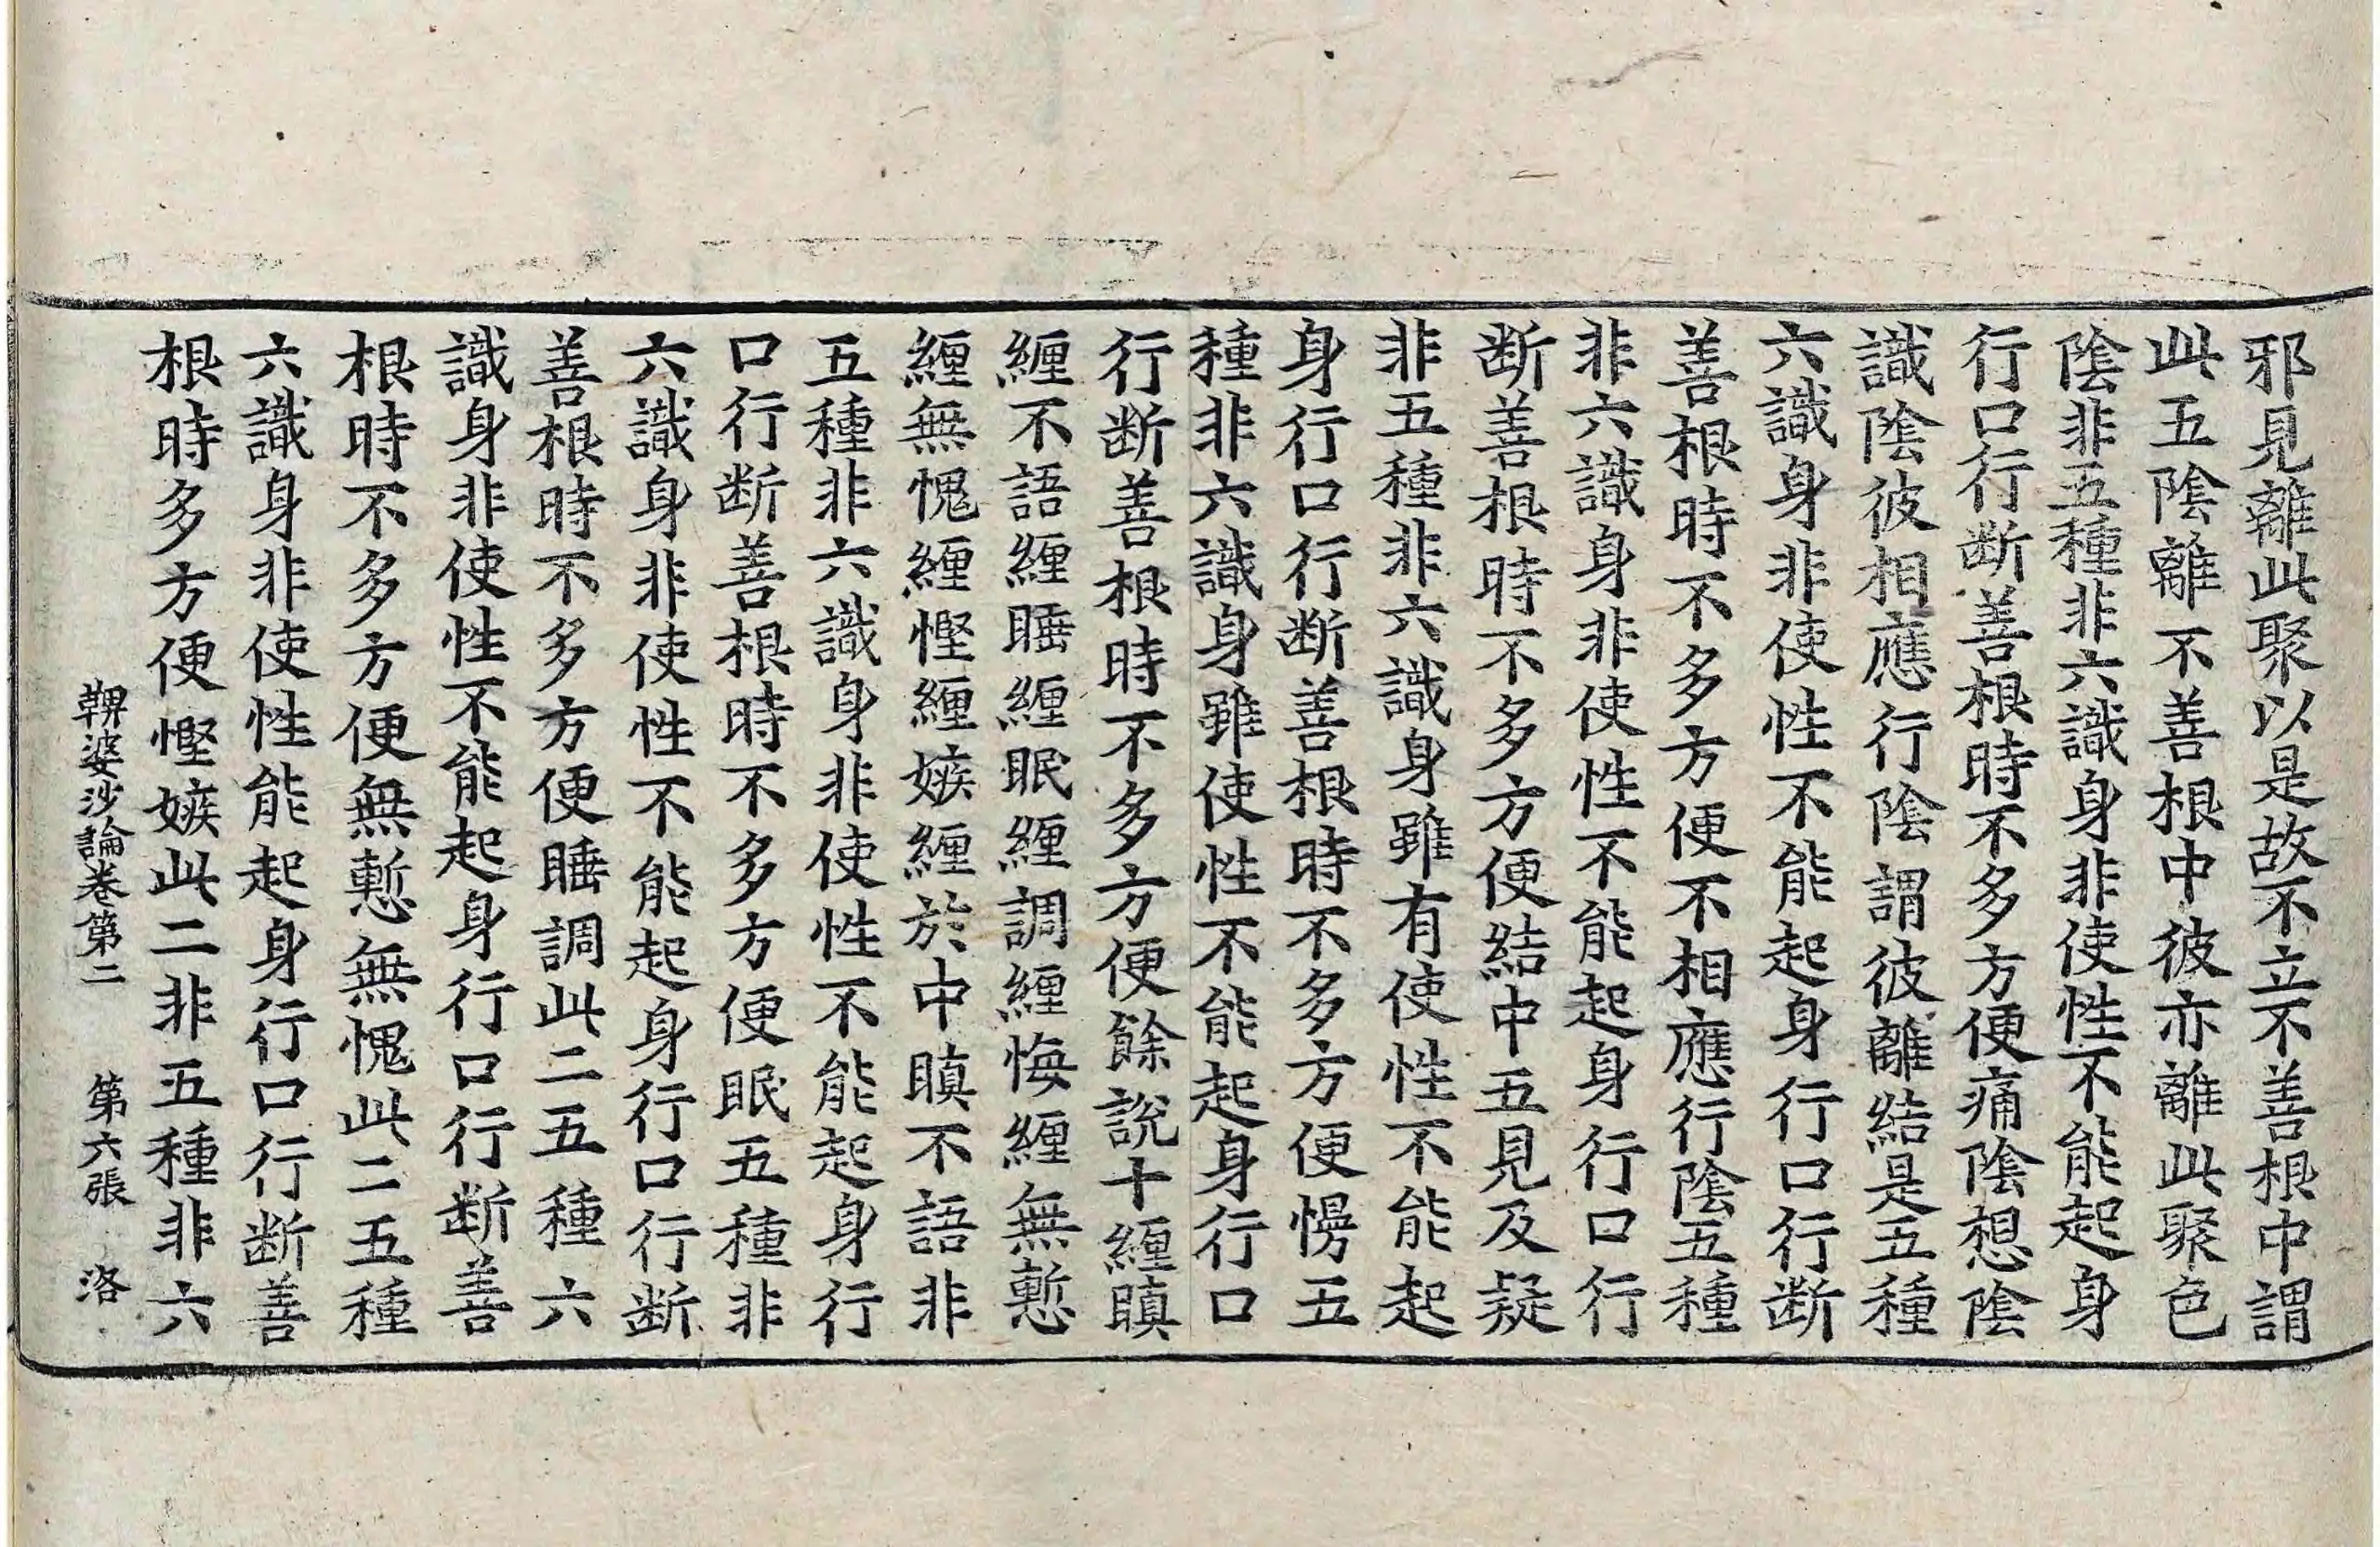 邪見離此聚以是故不立不善根中謂
此五陰離不善根中彼亦離此聚色
陰非五種非六識身非使性不能起身
行口行断善根時不多方便痛陰想陰
識陰彼相應行陰謂彼離結是五種
六識身非使性不能起身行口行断
善根時不多方便不相應行陰五種
非六識身非使性不能起身行口行
断善根時不多方便結中五見及疑
非五種非六識身雖有使性不能起
身行口行断善根時不多方便慢五
種非六識身雖使性不能起身行口
行断善根時不多方便餘說十纏瞋
纏不語纏睡纏眠纏調纏悔纏無慙
纏無愧纏慳纏嫉纏於中瞋不語非
五種非六識身非使性不能起身行
口行断善根時不多方便眠五種非
六識身非使性不能起身行口行断
善根時不多方便睡調此二五種六
識身非使性不能起身行口行断善
根時不多方便無慙無愧此二五種
六識身非使性能起身行口行断善
根時多方便慳嫉此二非五種非六
鞞婆沙論卷第二 第六張 洛